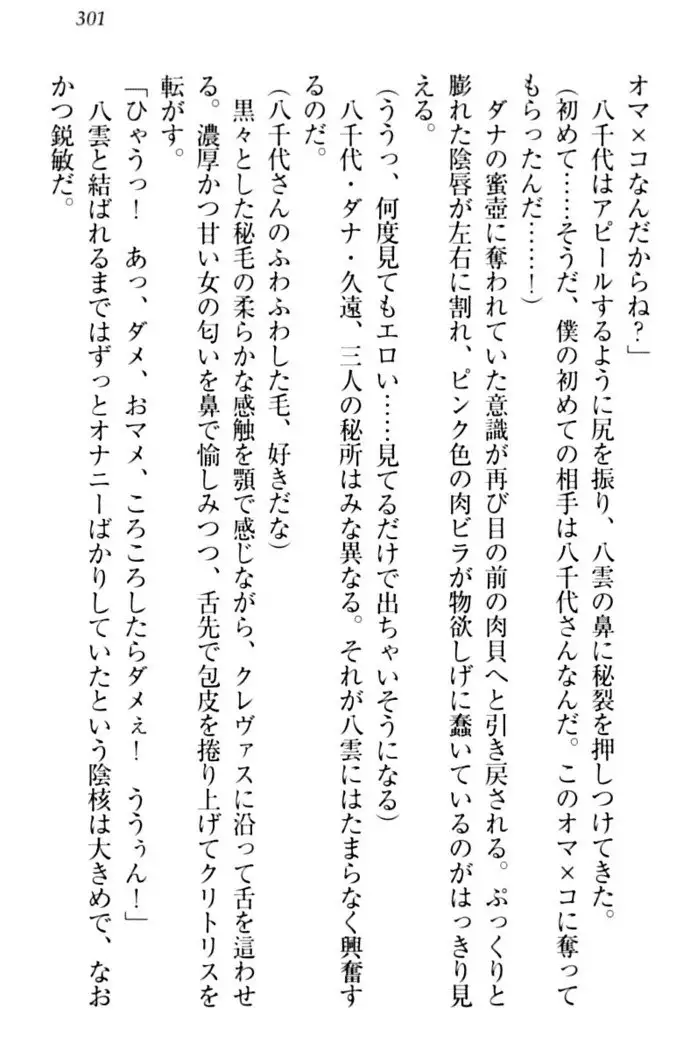 301
オマ×コなんだからね?」
八千代はアピールするように尻を振り、八雲の鼻に秘裂を押しつけてきた。
(初めて……そうだ、僕の初めての相手は八千代さんなんだ。このオマ×コに奪って
もらったんだ……!)
ダナの蜜壺に奪われていた意識が再び目の前の肉貝へと引き戻される。ぷっくりと
膨れた陰唇が左右に割れ、ピンク色の肉ビラが物欲しげに蠢いているのがはっきり見
える。
(ううっ、何度見てもエロい……見てるだけで出ちゃいそうになる)
八千代・ダナ・久遠、三人の秘所はみな異なる。それが八雲にはたまらなく興奮す
るのだ。
(八千代さんのふわふわした毛、好きだな)
黒々とした秘毛の柔らかな感触を顎で感じながら、クレヴァスに沿って舌を這わせ
る。濃厚かつ甘い女の匂いを鼻で愉しみつつ、舌先で包皮を捲り上げてクリトリスを
転がす。
「ひゃうっ! あっ、ダメ、おマメ、ころころしたらダメぇ! ううぅん!」
八雲と結ばれるまではずっとオナニーばかりしていたという陰核は大きめで、なお
かつ鋭敏だ。